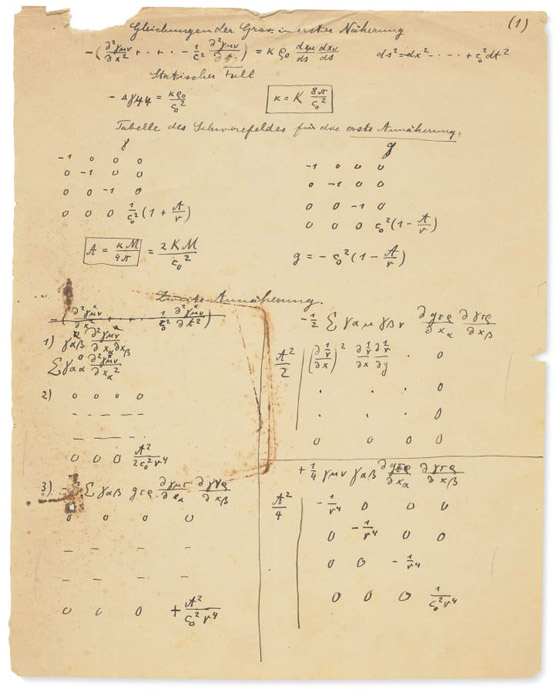 (1)
Gleichungen der Grav. in erster Näherung
-(∂²γμν/∂x² + · + · - 1/c² ∂²γμν/∂t²) = κ ρ₀ dxμ/ds dxν/ds ds² = dx² - · · · · + c₀² dt²
Statischer Fall
- Δγ44 = κρ₀/c₀² κ = K 8π/c₀²
Tabelle des Schwerefeldes für die erste Annäherung.
γ g
-1 0 0 0 -1 0 0 0
0 -1 0 0 0 -1 0 0
0 0 -1 0 0 0 -1 0
0 0 0 1/c₀² (1 + A/r) 0 0 0 c₀² (1 - A/r)
A = κM/4π = 2KM/c₀² g = - c₀² (1 - A/r)
Zweite Annäherung.
1) γαβ ∂²γμν/∂xα∂xβ
Σ γαα ∂²γμν/∂xα²
2) 0 0 0 0
- - - -
- - - -
0 0 0 A²/2c₀²r⁴
3) - Σ γαβ gτρ ∂γμτ/∂xα ∂γνρ/∂xβ
0 0 0 0
- - - -
- - - -
0 0 0 + A²/c₀²r⁴
-1/2 Σ γαμ γβν ∂gτρ/∂xα ∂γτρ/∂xβ
A²/2 (∂1/r/∂x)² ∂1/r/∂x ∂1/r/∂y · 0
· · · 0
· · · 0
0 0 0 0
+ 1/4 γμν γαβ ∂gτρ/∂xα ∂γτρ/∂xβ
A²/4 -1/r⁴ 0 0 0
0 -1/r⁴ 0 0
0 0 -1/r⁴ 0
0 0 0 1/c₀²r⁴